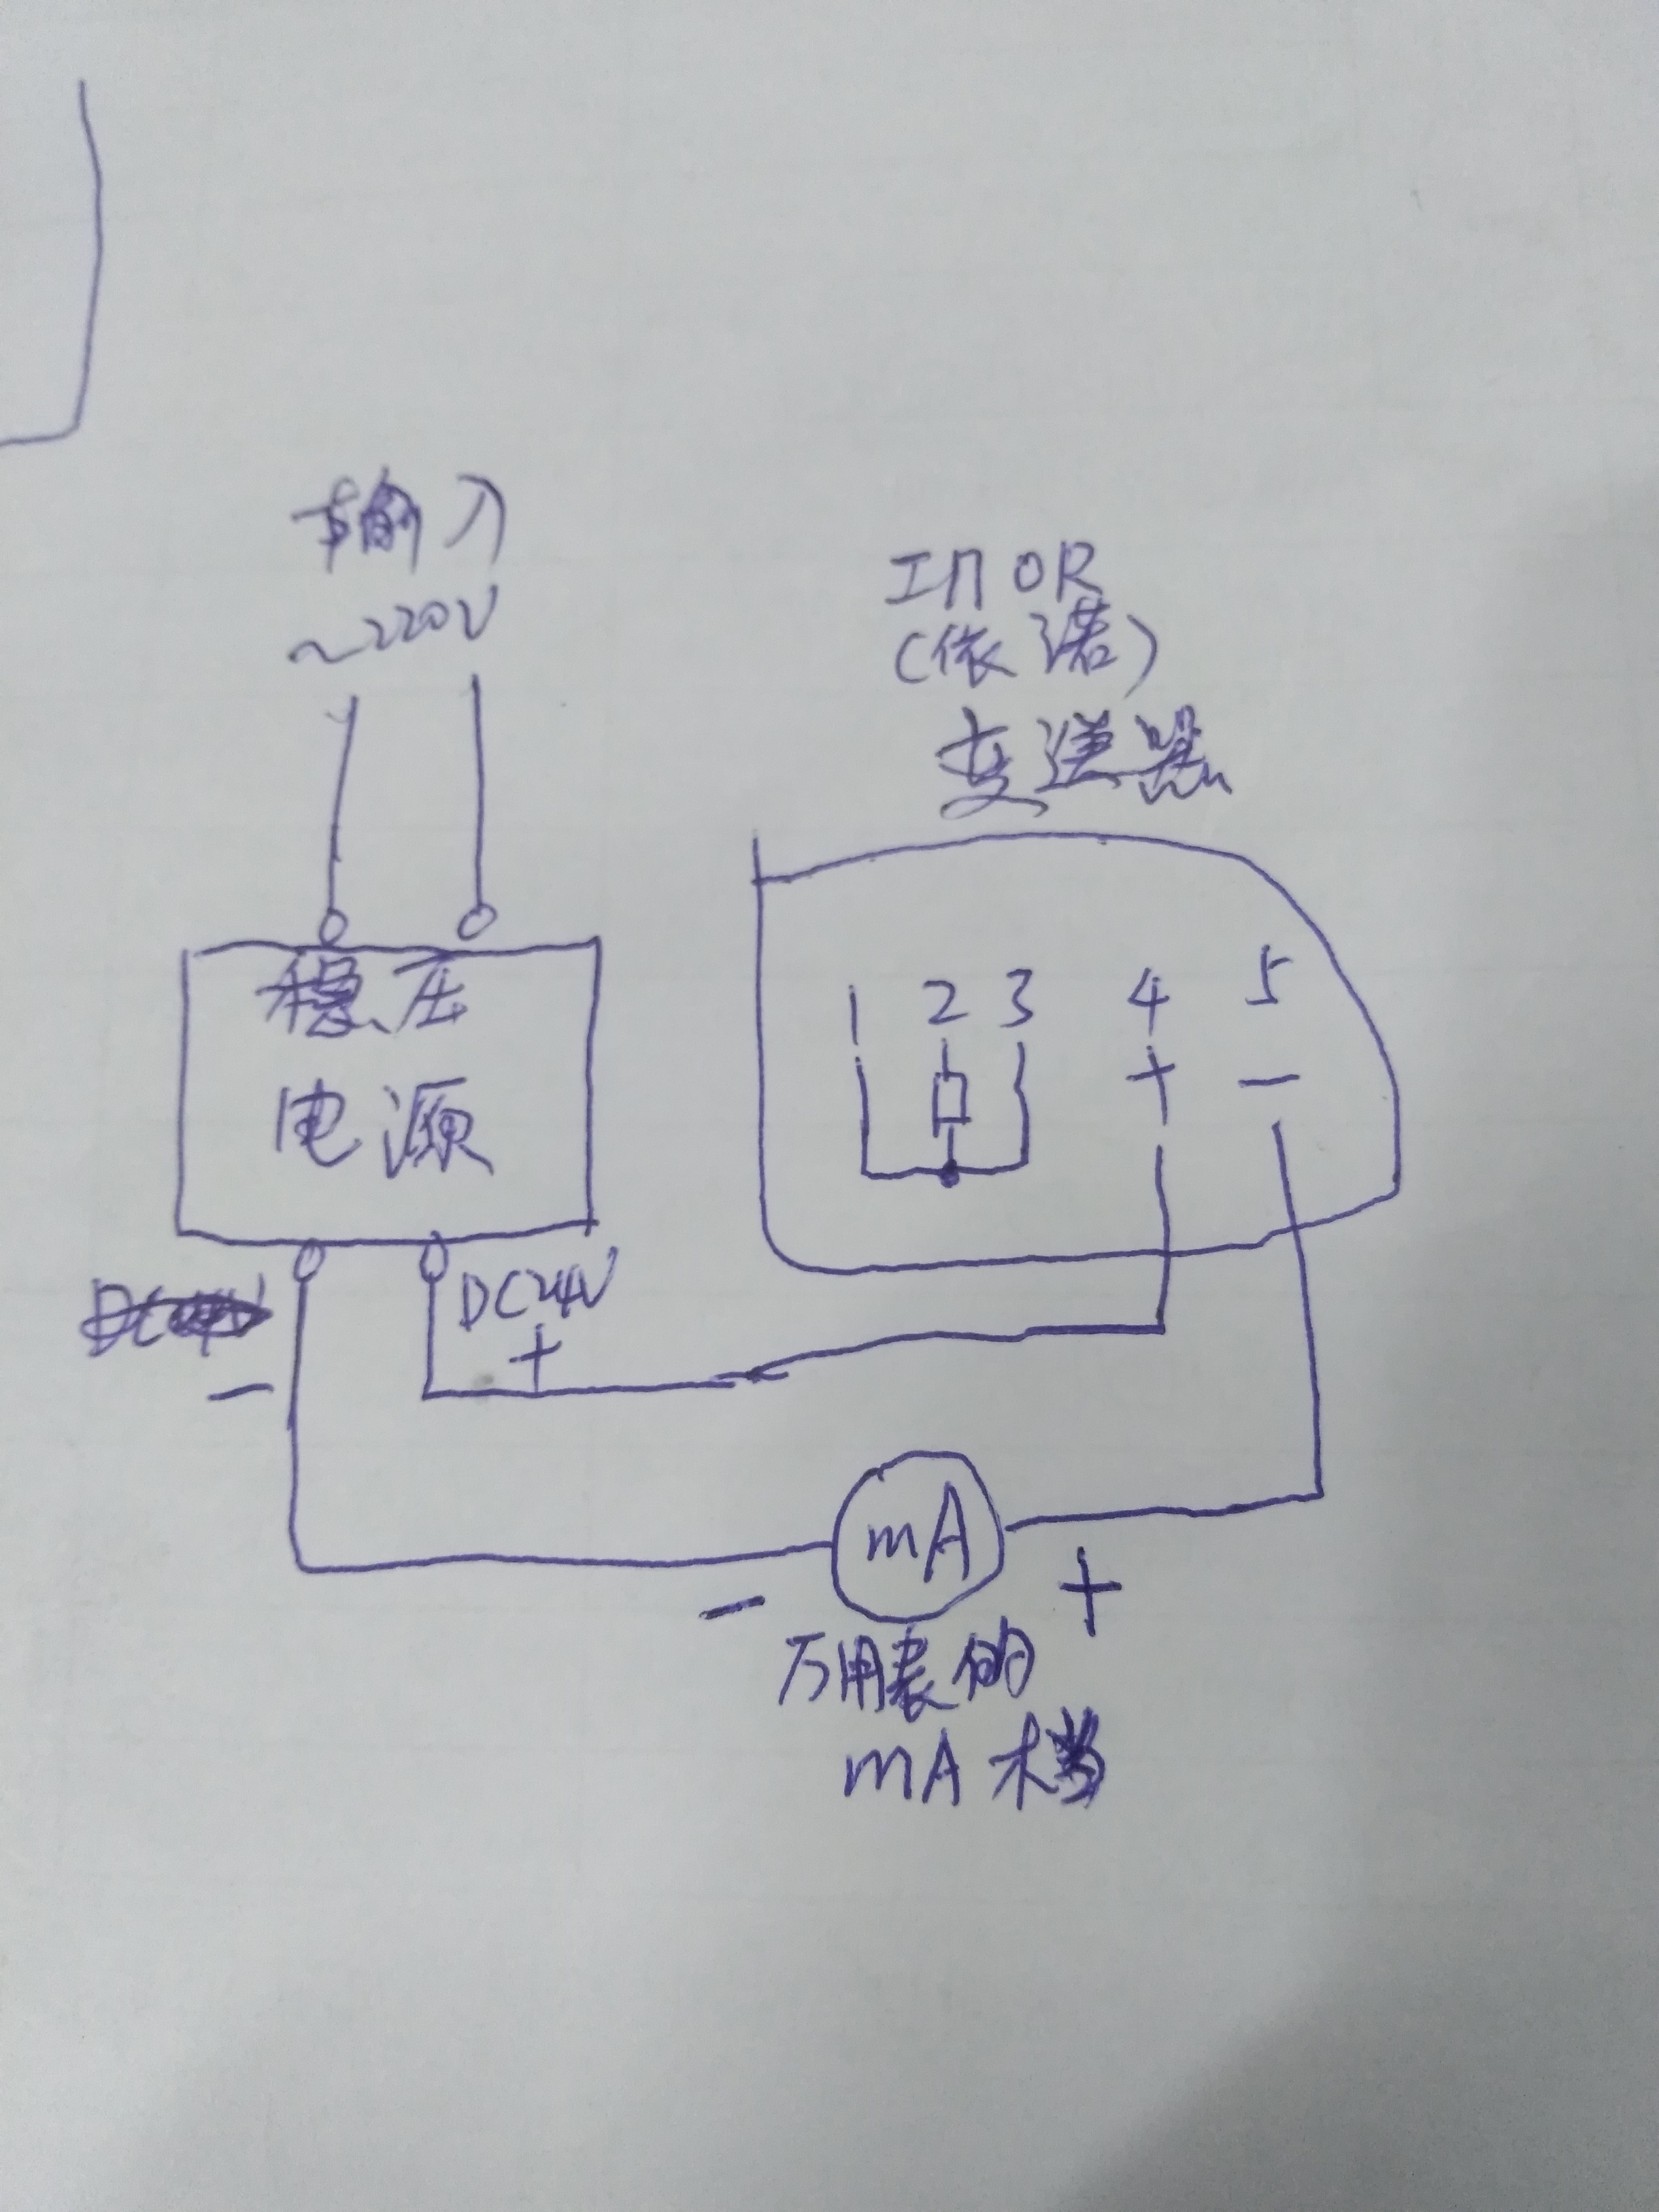 输入
~220V
INOR
(依诺)
变送器
稳压
电源
1 2 3 4 5
+ −
DC24V
−
+
mA
− +
万用表的
mA档